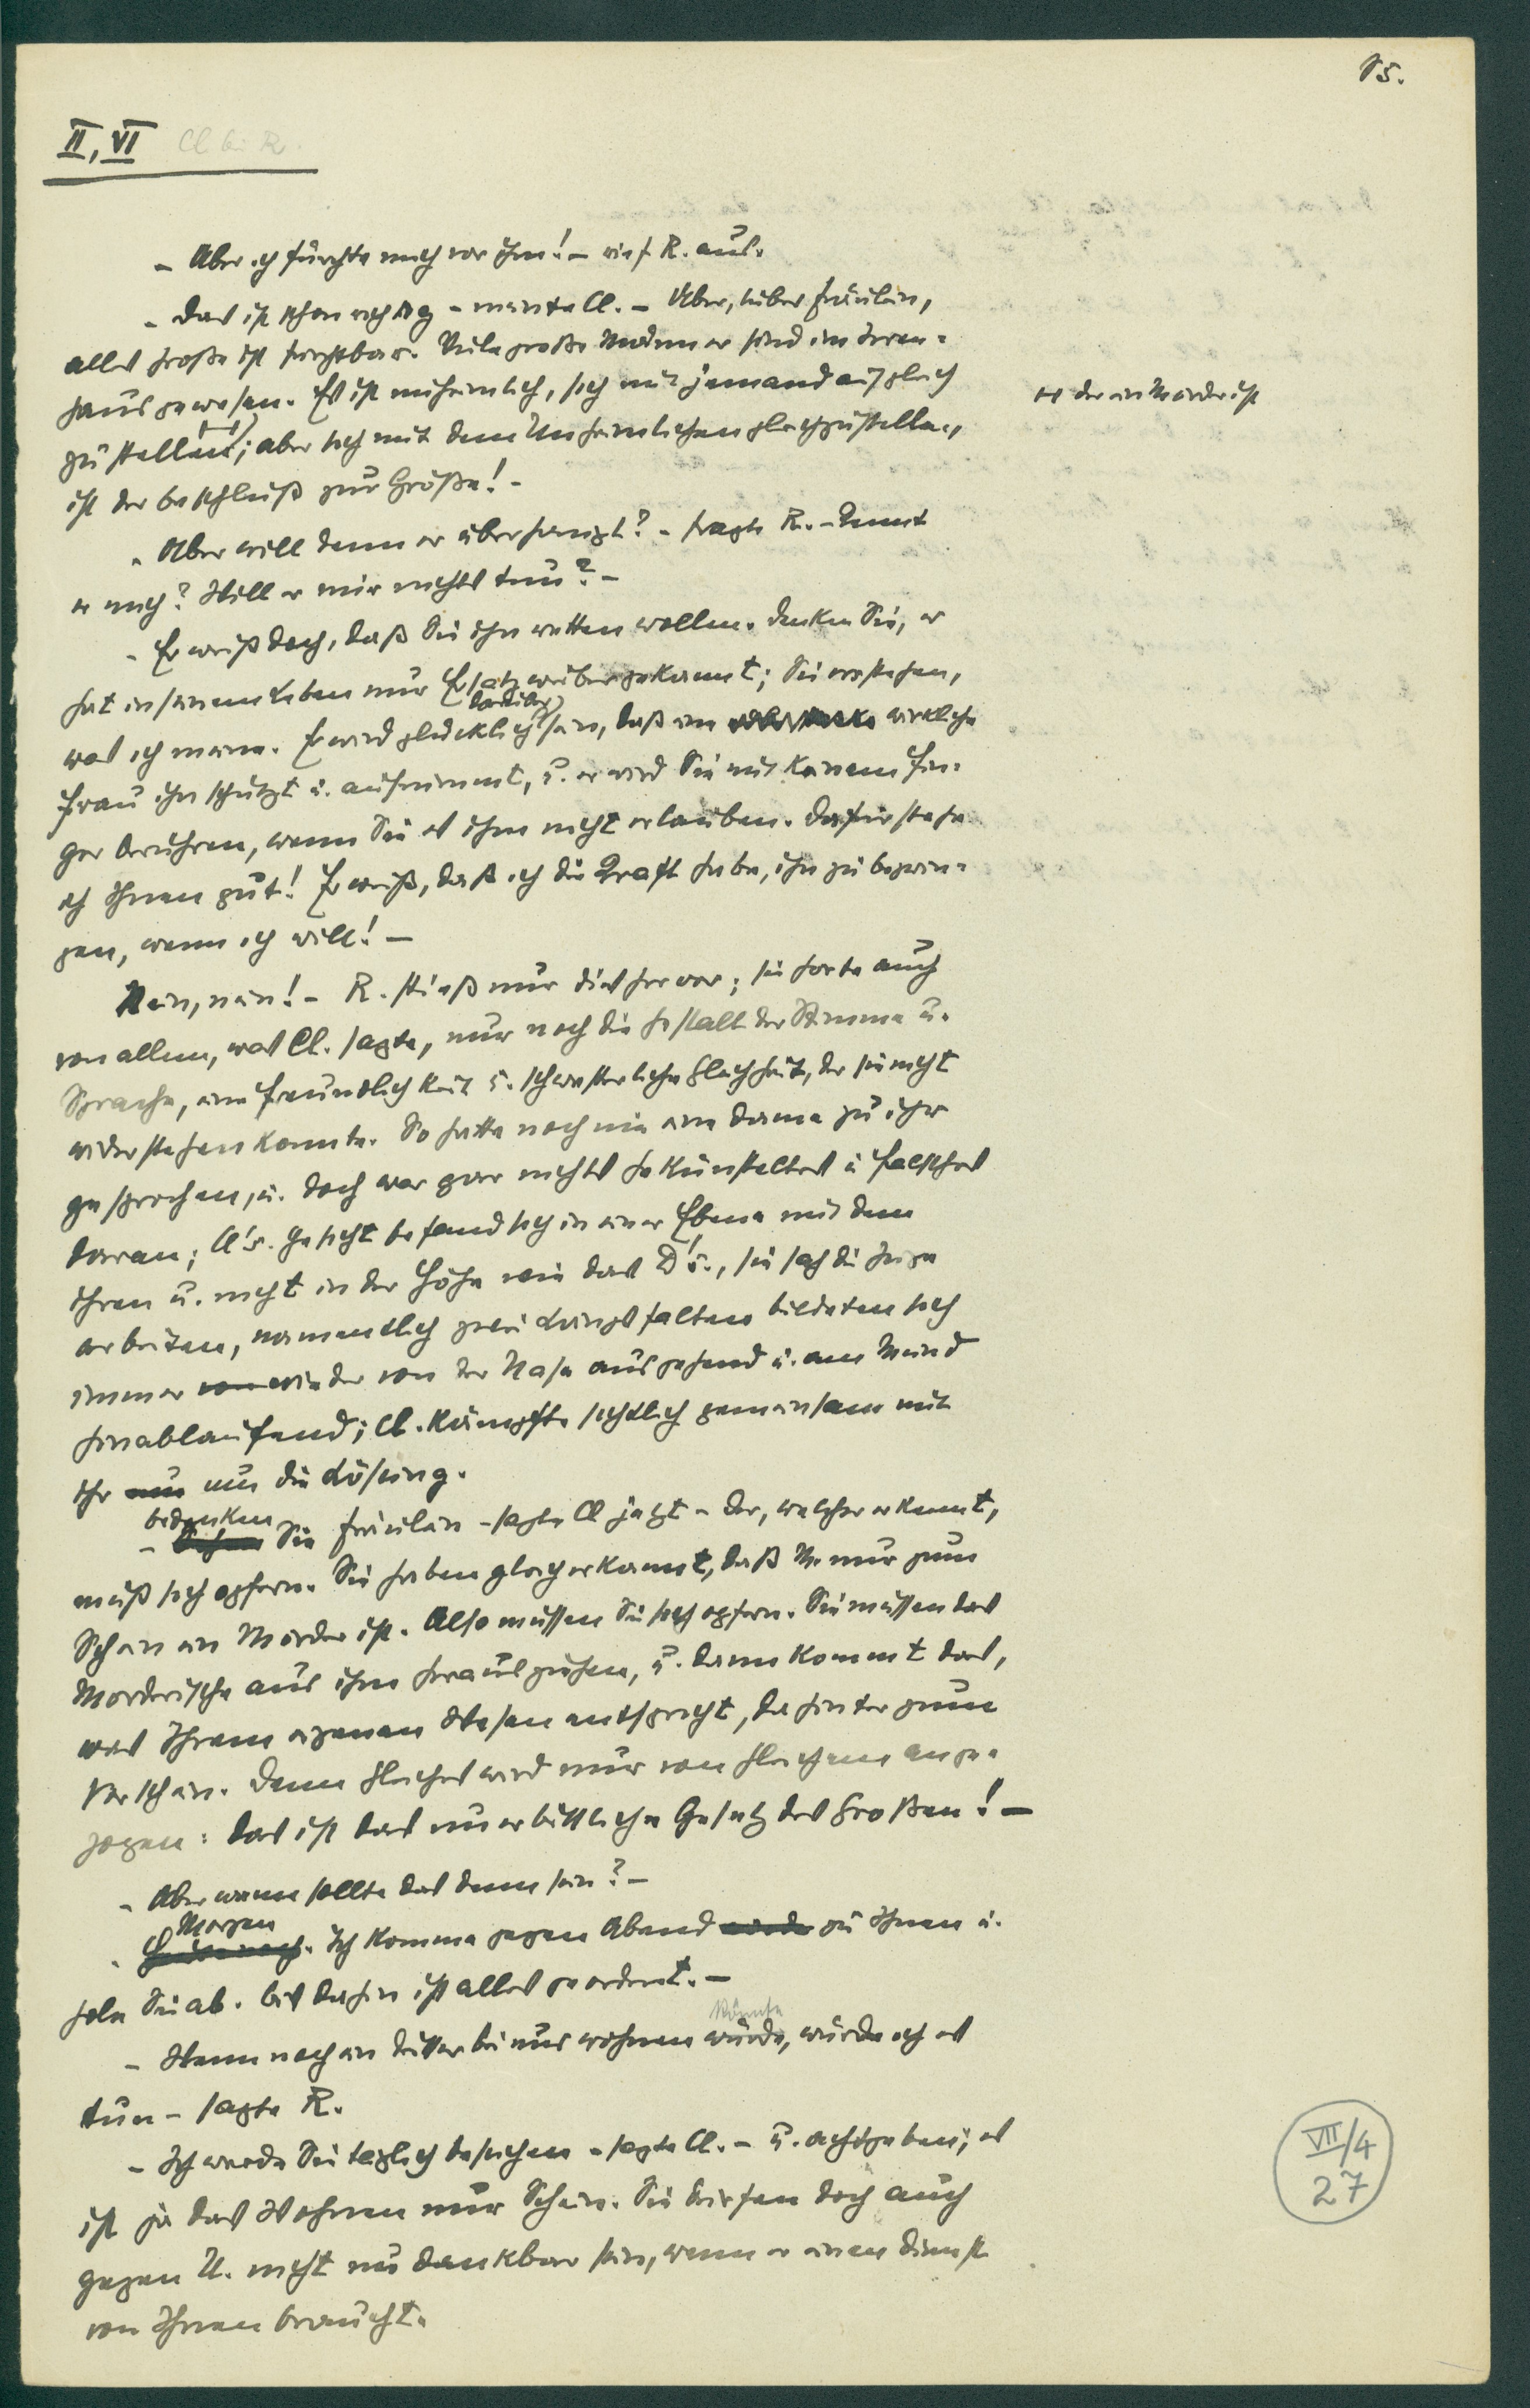 85.
II, VI Cl bei R.
– Aber ich fürchte mich vor ihm! – rief R. aus.
– Das ist schon richtig – meinte Cl. – Aber, liebes Fräulein,
alles Große ist furchtbar. Viele große Männer sind im Irren-
haus gewesen. Es ist unheimlich, sich mit jemand auf gleich
zu stellen, ; aber sich mit dem Unheimlichen gleichzustellen,
⊢⊣ der ein Mörder ist
ist der Entschluß zur Größe! –
– Aber will denn er überhaupt? – fragte R. – Kennt
er mich? Will er mir nichts tun? –
– Er weiß doch, daß Sie ihn retten wollen. Denken Sie, er
hat in seinem Leben nur Ersatzweiber gekannt; Sie verstehen,
was ich meine. Er wird glücklich darüber sein, daß eine wirkliche
Frau ihn schützt u. aufnimmt, u. er wird Sie mit keinem Fin-
ger berühren, wenn Sie es ihm nicht erlauben. Dafür stehe
ich Ihnen gut! Er weiß, daß ich die Kraft habe, ihn zu bezwin-
gen, wenn ich will! –
Nein, nein! – R. stieß nur dies hervor; sie hörte auch
von allem, was Cl. sagte, nur noch die Gestalt der Stimme u.
Sprache, eine Freundlichkeit u. schwesterliche Gleichheit, der sie nicht
widerstehen konnte. So hatte noch nie eine Dame zu ihr
gesprochen, u. doch war gar nichts Gekünsteltes u Falsches
daran; Cl's. Gesicht befand sich in einer Ebene mit dem
ihren u. nicht in der Höhe wie das D's., sie sah die Züge
arbeiten, namentlich zwei Längsfalten bildeten sich
immer von wieder von der Nase ausgehend u. am Mund
hinablaufend; Cl. kämpfte sichtlich gemeinsam mit
ihr um um die Lösung.
– Sehen bedenken Sie Fräulein – sagte Cl jetzt – der, welcher erkennt,
muß sich opfern. Sie haben gleich erkannt, daß M. nur zum
Schein ein Mörder ist. Also müssen Sie sich opfern. Sie müssen das
Mörderische aus ihm herausziehen, u. dann kommt das,
was Ihrem eigenen Wesen entspricht, dahinter zum
Vorschein. Denn Gleiches wird nur von Gleichem ange-
zogen: das ist das unerbittliche Gesetz des Großen! –
– Aber wann sollte das denn sein? –
– Heute noch Morgen. Ich komme gegen Abend zu Ihnen u.
hole Sie ab. bis dahin ist alles geordnet. –
– Wenn noch ein dritter bei uns wohnen würde könnte, würde ich es
tun – sagte R.
– Ich werde Sie täglich besuchen – sagte Cl. – u. achtgeben; es
ist ja das Wohnen nur Schein. Sie dürfen doch auch
gegen U. nicht undankbar sein, wenn er einen Dienst
von Ihnen braucht.
VII/4
27